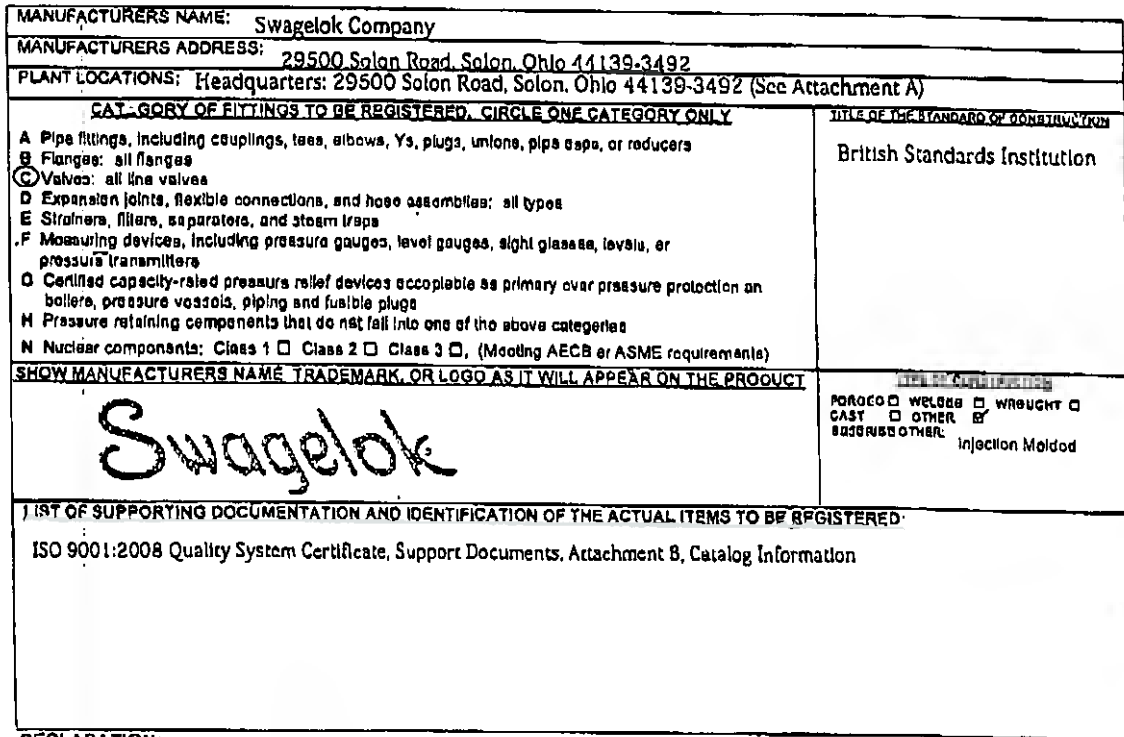 MANUFACTURERS NAME: Swagelok Company
MANUFACTURERS ADDRESS: 29500 Solon Road, Solon, Ohio 44139-3492
PLANT LOCATIONS: Headquarters: 29500 Solon Road, Solon, Ohio 44139-3492 (See Attachment A)
CATEGORY OF FITTINGS TO BE REGISTERED, CIRCLE ONE CATEGORY ONLY
A Pipe fittings, including couplings, tees, elbows, Ys, plugs, unions, pipe caps, or reducers
B Flanges: all flanges
C Valves: all line valves
D Expansion joints, flexible connections, and hose assemblies: all types
E Strainers, filters, separators, and steam traps
F Measuring devices, including pressure gauges, level gauges, sight glasses, levels, or
pressure transmitters
G Certified capacity-rated pressure relief devices acceptable as primary over pressure protection on
boilers, pressure vessels, piping and fusible plugs
H Pressure retaining components that do not fall into one of the above categories
N Nuclear components: Class 1 ☐ Class 2 ☐ Class 3 ☐, (Meeting AECB or ASME requirements)
TITLE OF THE STANDARD OF CONSTRUCTION
British Standards Institution
SHOW MANUFACTURERS NAME TRADEMARK, OR LOGO AS IT WILL APPEAR ON THE PRODUCT
Swagelok
TYPE OF CONSTRUCTION
FORGED ☐ WELDED ☐ WROUGHT ☐
CAST ☐ OTHER ☑
DESCRIBE OTHER:
Injection Molded
LIST OF SUPPORTING DOCUMENTATION AND IDENTIFICATION OF THE ACTUAL ITEMS TO BE REGISTERED:
ISO 9001:2008 Quality System Certificate, Support Documents, Attachment B, Catalog Information